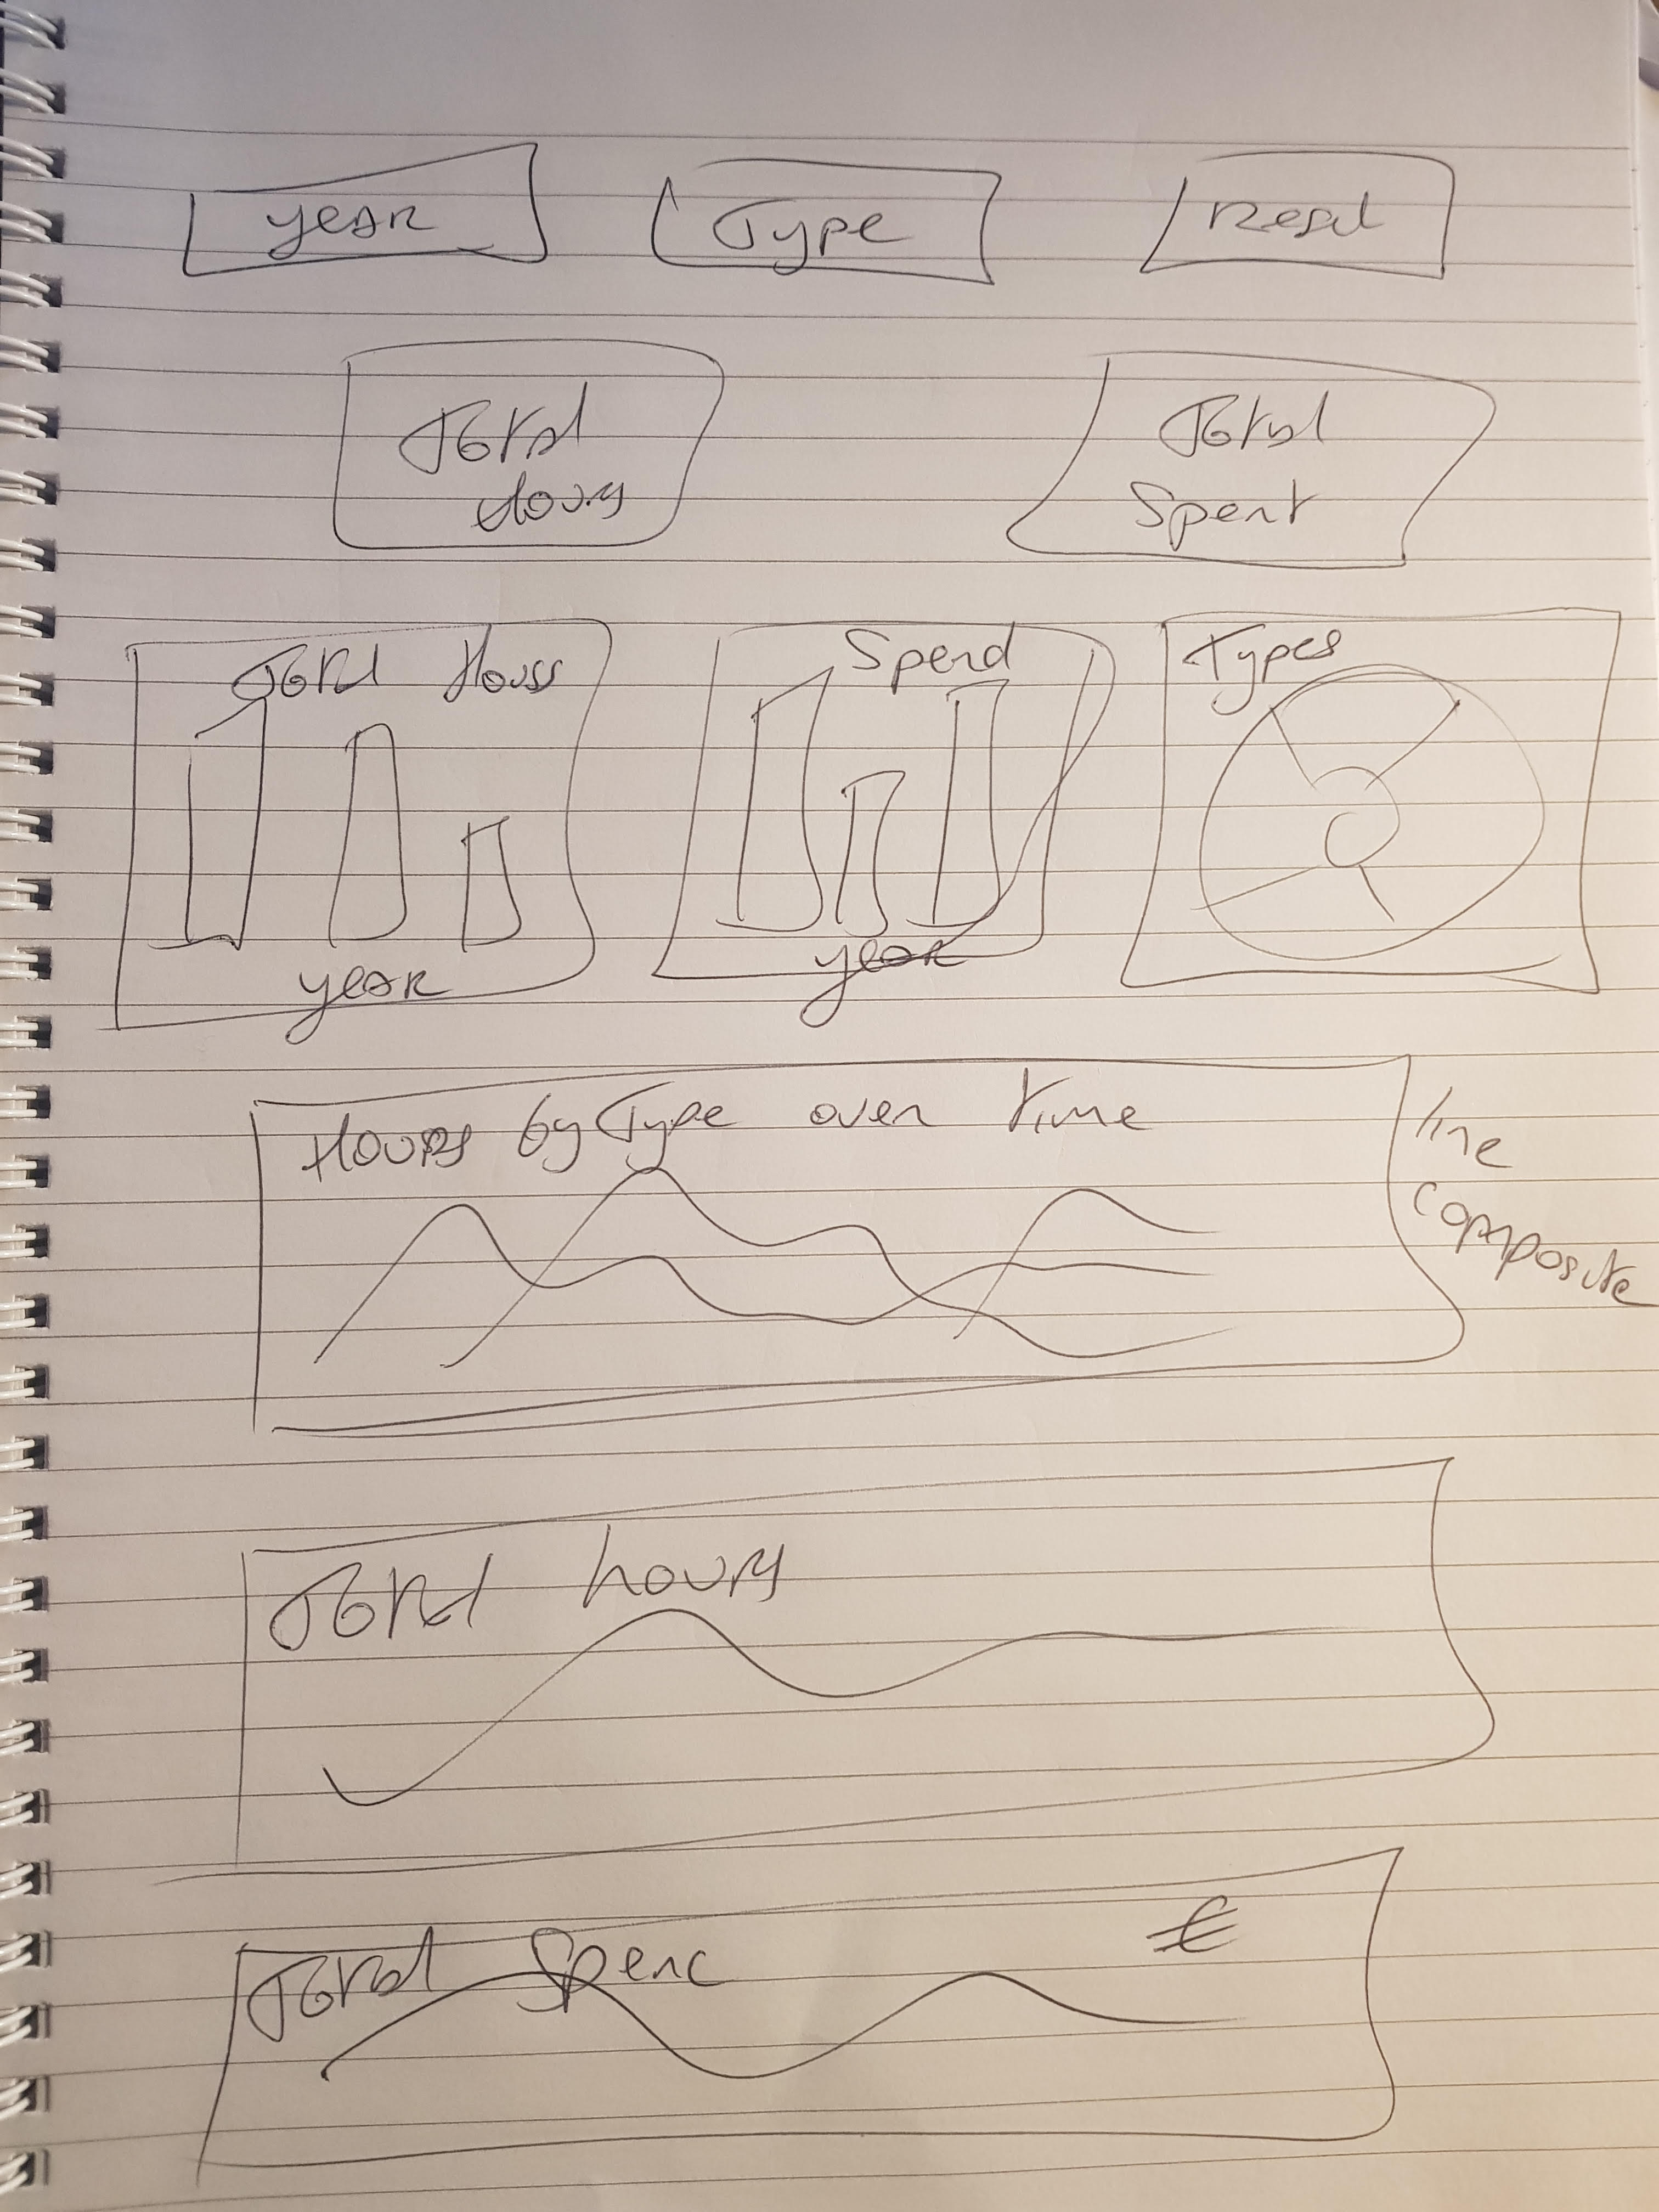 year
Type
Reset
Total
Hours
Total
Spent
Total Hours
year
Spend
year
Types
Hours by Type over time
line
composite
Total hours
Total Spenc
€